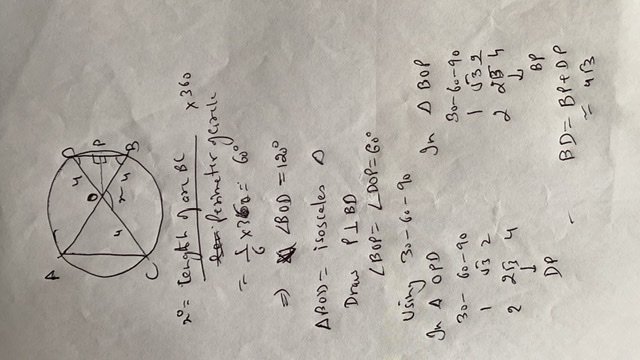 A
D
P
B
O
C
4
4
x
4
x° = length of arc BC × 360
perimeter of circle
= 1/6 × 360 = 60°
⇒ ∠BOD = 120°
ΔBOD = isosceles Δ
Draw P⊥BD
∠BOP = ∠DOP = 60°
Using 30-60-90
In Δ OPD
30-60-90
1 √3 2
2 2√3 4
↓
DP
In Δ BOP
30-60-90
1 √3 2
2 2√3 4
↓
BP
BD = BP+DP
= 4√3